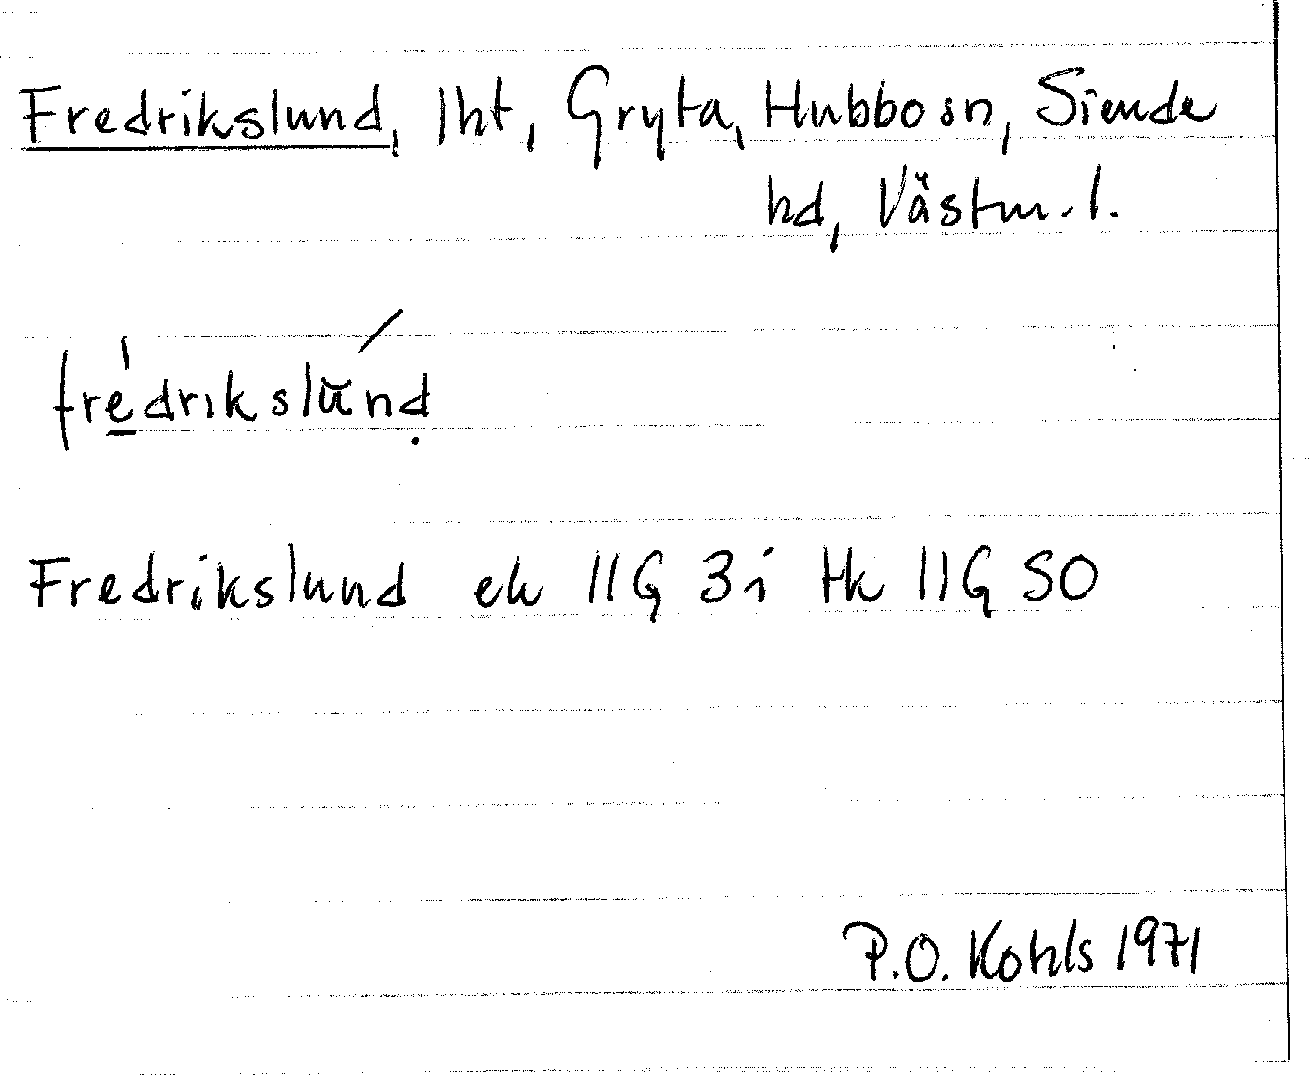 Fredrikslund, lht, Gryta, Hubbo sn, Siende
hd, Västm. l.
fre̲drikslu̅nḍ
Fredrikslund ek 11G 3i tk 11G SO
P.O. Kohls 1971